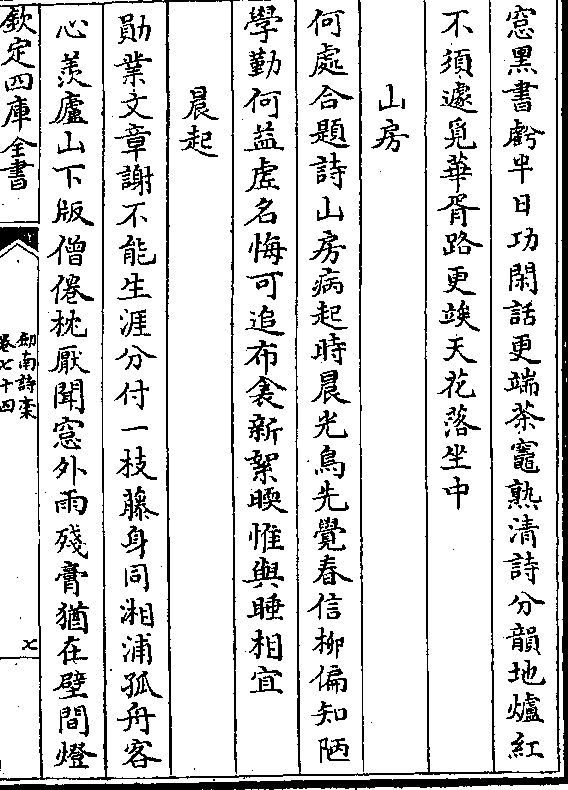 窓黑書虧半日功閑話更端茶竈熟清詩分韻地爐紅
不須遽覓華胥路更竢天花落坐中
山房
何處合題詩山房病起時晨光鳥先覺春信柳偏知陋
學勤何益虛名悔可追布衾新絮暖惟與睡相宜
晨起
勛業文章謝不能生涯分付一枝藤身同湘浦孤舟客
心羨廬山下版僧倦枕厭聞窓外雨殘膏猶在壁間燈
欽定四庫全書
劒南詩槀
卷七十四
七